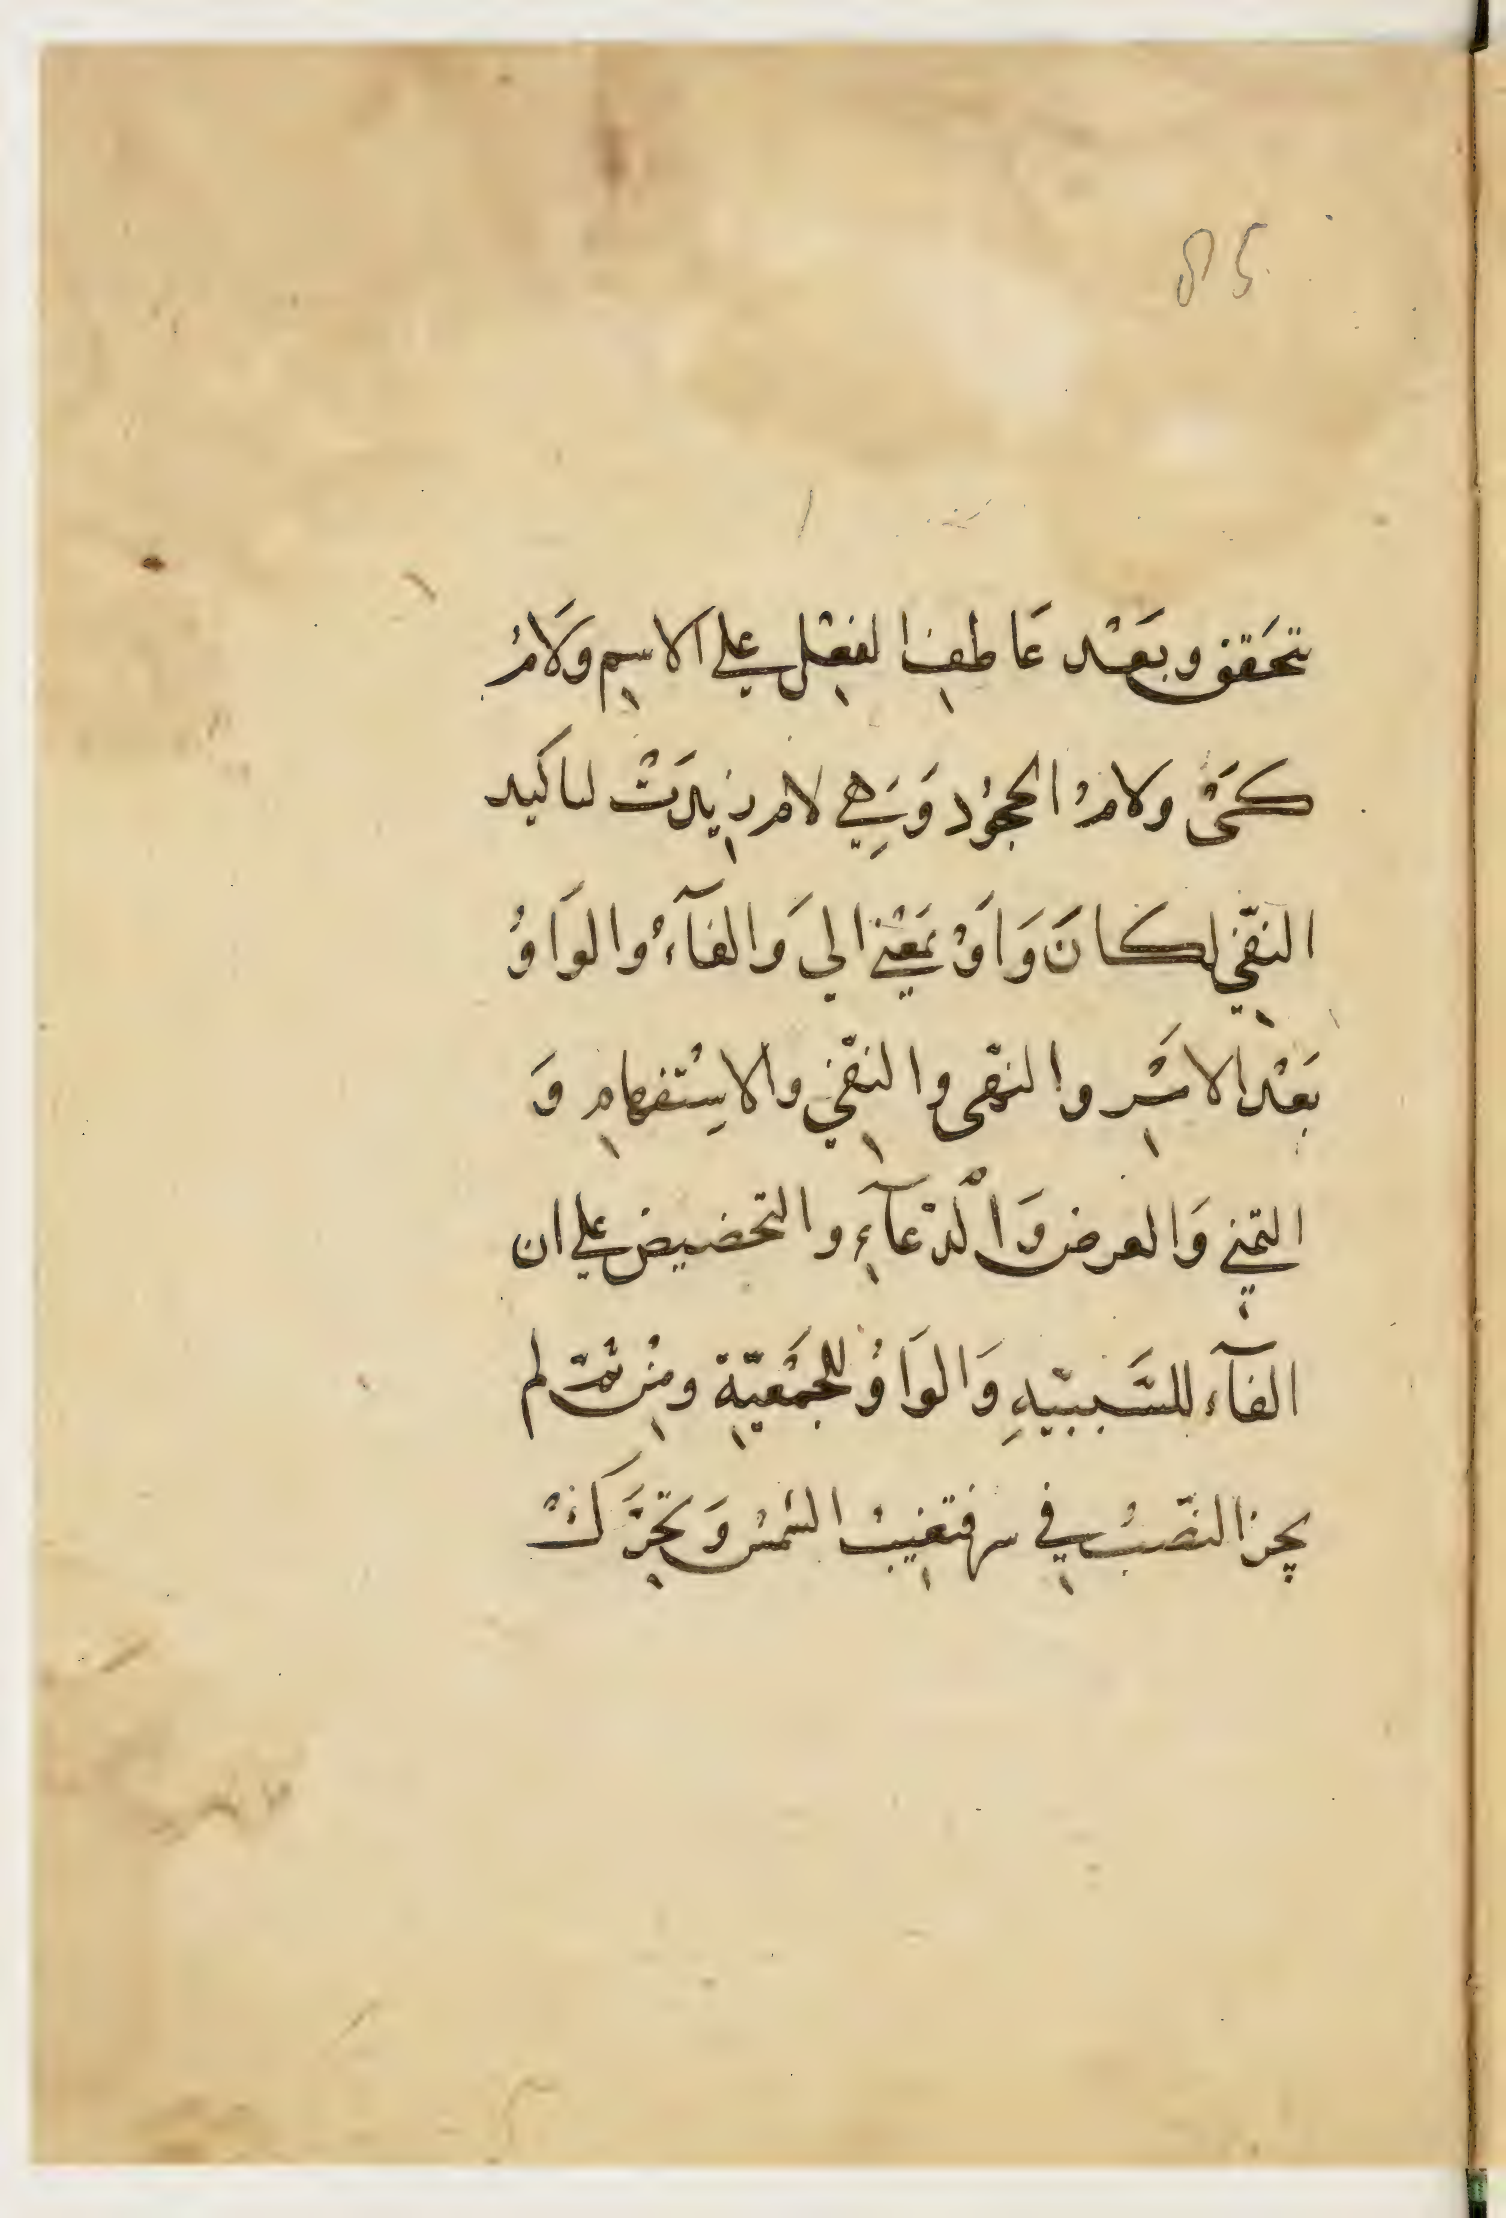 85
تحَقق وبعَْد عَاطِف الفِعْل علي الاسِم ولَامُ
كَىْ ولامُ الجحُوْد وَهَِي لام زِيدَتْ لتاكيد
النفّيِ لكانَ وَاَوْ بمَعْني الي وَالفآءُ والوَاوُ
بَعْد الامْرِ والنهّى والنفّيِ والاسِْتفهامِ وَ
التمنيِ وَالعرض وَالْدّعآءِ والتحضيض علي ان
الفآء للسَّببيّهِ وَالوَاوُ للجمَْعيّةِ ومِنْ ثمّ لم
يجز النصّبُ فيِ سر فتغيِبْ الشمْس وَتحِرَّكَْ